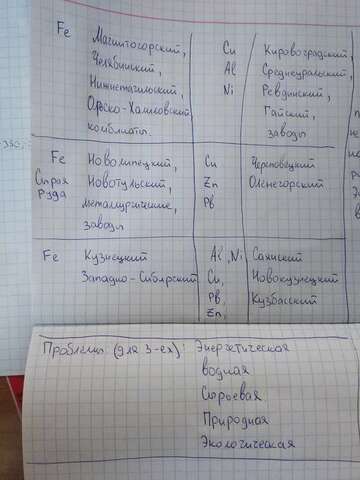 Fe Магнитогорский, Cu Кировоградский,
Челябинский, Al Среднеуральский,
Нижнетагильский, Ni Ревдинский,
Орско-Халиловский Гайский,
комбинаты. заводы
Fe Новолипецкий, Cu Череповецкий
Сырая Новотульский, Zn Оленегорский
руда металлургические, Pb
заводы
Fe Кузнецкий Al, Ni Саянский
Западно-Сибирский Cu, Новокузнецкий
Pb, Кузбасский
Zn,
Проблемы: (для 3-ех): Энергетическая
водная
Сырьевая
Природная
Экологическая